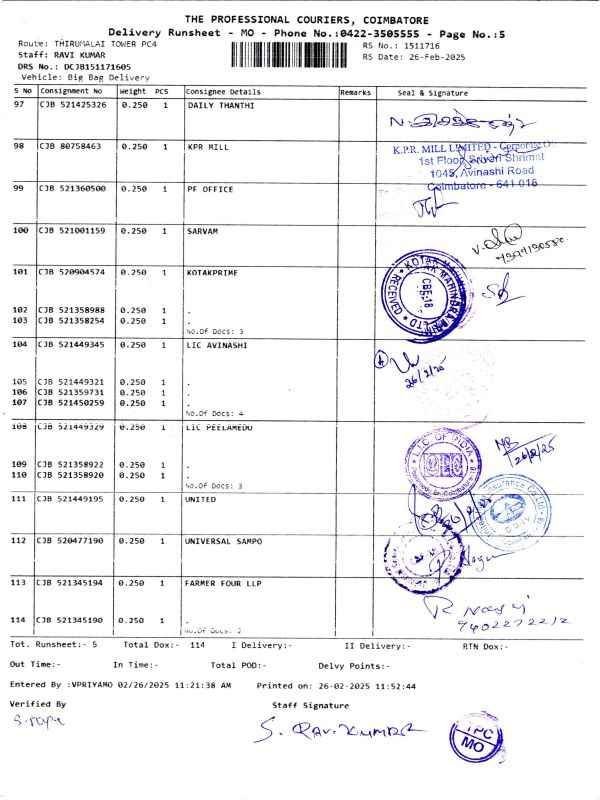 THE PROFESSIONAL COURIERS, COIMBATORE
Delivery Runsheet - MO - Phone No.:0422-3505555 - Page No.:5
Route: THIRUMALAI TOWER PC4
RS No.: 1511716
Staff: RAVI KUMAR
RS Date: 26-Feb-2025
DRS No.: DCJB151171605
Vehicle: Big Bag Delivery
S No Consignment No Weight PCS Consignee Details Remarks Seal & Signature
97 CJB 521425326 0.250 1 DAILY THANTHI
98 CJB 80758463 0.250 1 KPR MILL
K.P.R. MILL LIMITED - Corporate O
1st Floor Srivari Shrimat
1045, Avinashi Road
Coimbatore - 641 018
99 CJB 521360500 0.250 1 PF OFFICE
100 CJB 521001159 0.250 1 SARVAM
101 CJB 520904574 0.250 1 KOTAKPRIME
RECEIVED
CBE-18
102 CJB 521358988 0.250 1 .
103 CJB 521358254 0.250 1 .
No.Of Docs: 3
104 CJB 521449345 0.250 1 LIC AVINASHI
26/2/25
105 CJB 521449321 0.250 1 .
106 CJB 521359731 0.250 1 .
107 CJB 521450259 0.250 1 .
No.Of Docs: 4
108 CJB 521449329 0.250 1 LIC PEELAMEDU
L.I.C. OF INDIA
26/2/25
109 CJB 521358922 0.250 1 .
110 CJB 521358920 0.250 1 .
No.Of Docs: 3
111 CJB 521449195 0.250 1 UNITED
112 CJB 520477190 0.250 1 UNIVERSAL SAMPO
113 CJB 521345194 0.250 1 FARMER FOUR LLP
114 CJB 521345190 0.250 1 .
No.Of Docs: 2
9402272212
Tot. Runsheet:- 5 Total Dox:- 114 I Delivery:- II Delivery:- RTN Dox:-
Out Time:- In Time:- Total POD:- Delvy Points:-
Entered By :VPRIYAMO 02/26/2025 11:21:38 AM Printed on: 26-02-2025 11:52:44
Verified By Staff Signature
S. Papa
S. RAVI KUMAR
TPC
MO